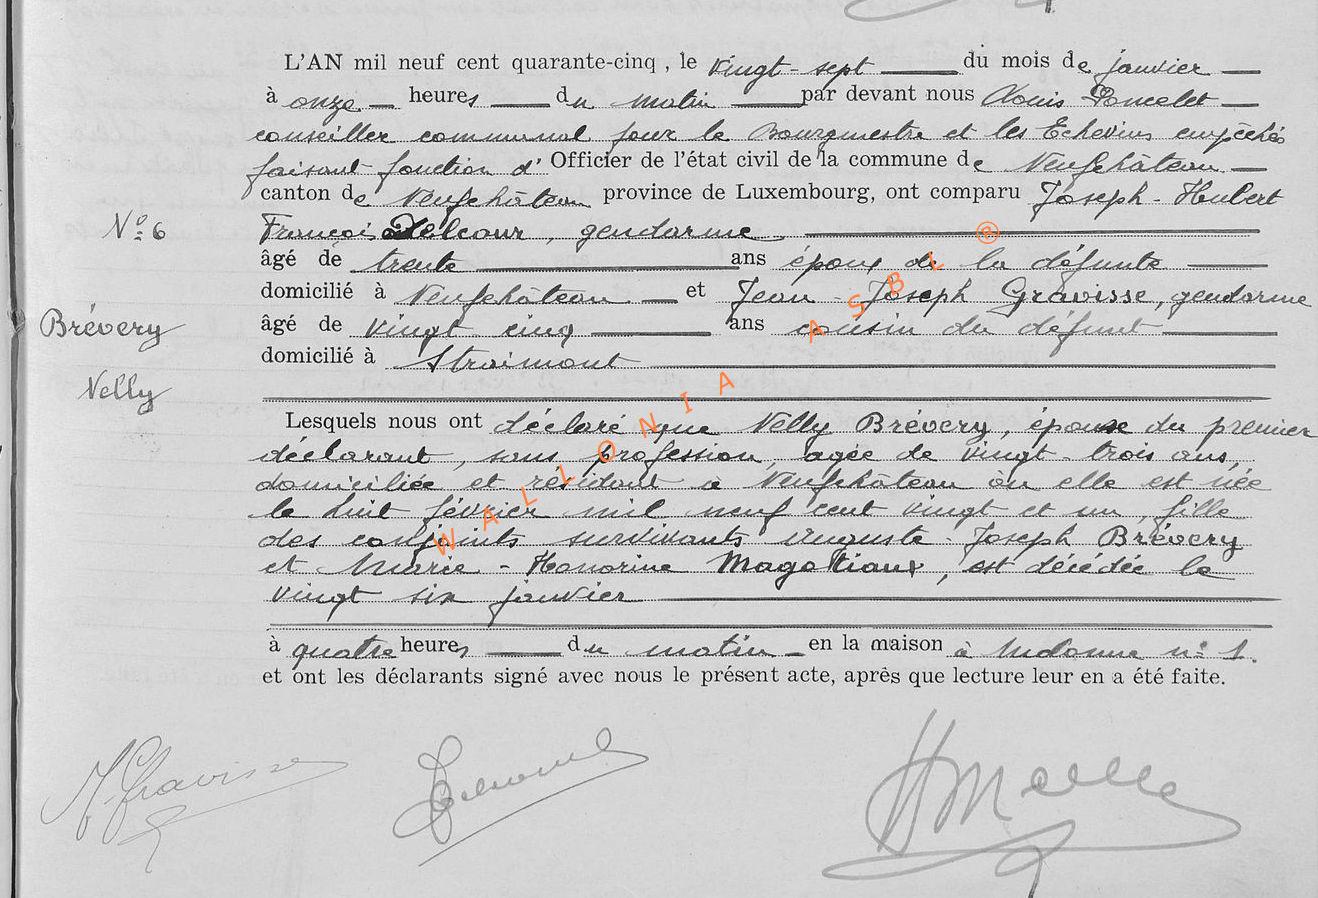 L'AN mil neuf cent quarante-cinq, le vingt-sept du mois de janvier
à onze heures du matin par devant nous Louis Poncelet
conseiller communal pour le Bourgmestre et les Echevins empêchés
faisant fonction d' Officier de l'état civil de la commune de Neufchâteau
canton de Neufchâteau province de Luxembourg, ont comparu Joseph-Hubert
N° 6 François Delcour, gendarme
âgé de trente ans époux de la défunte
domicilié à Neufchâteau et Jean-Joseph Gravisse, gendarme
Brévery âgé de vingt cinq ans cousin du défunt
domicilié à Straimont
Nelly
Lesquels nous ont déclaré que Nelly Brévery, épouse du premier
déclarant, sans profession, agée de vingt-trois ans,
domiciliée et résidant à Neufchâteau où elle est née
le huit février mil neuf cent vingt et un, fille
des conjoints survivants Auguste-Joseph Brévery
et Marie-Honorine Magotiaux, est décédée le
vingt six janvier
à quatre heures du matin en la maison à n° 1.
et ont les déclarants signé avec nous le présent acte, après que lecture leur en a été faite.
J. Gravisse
WALLONIA ASBL ®